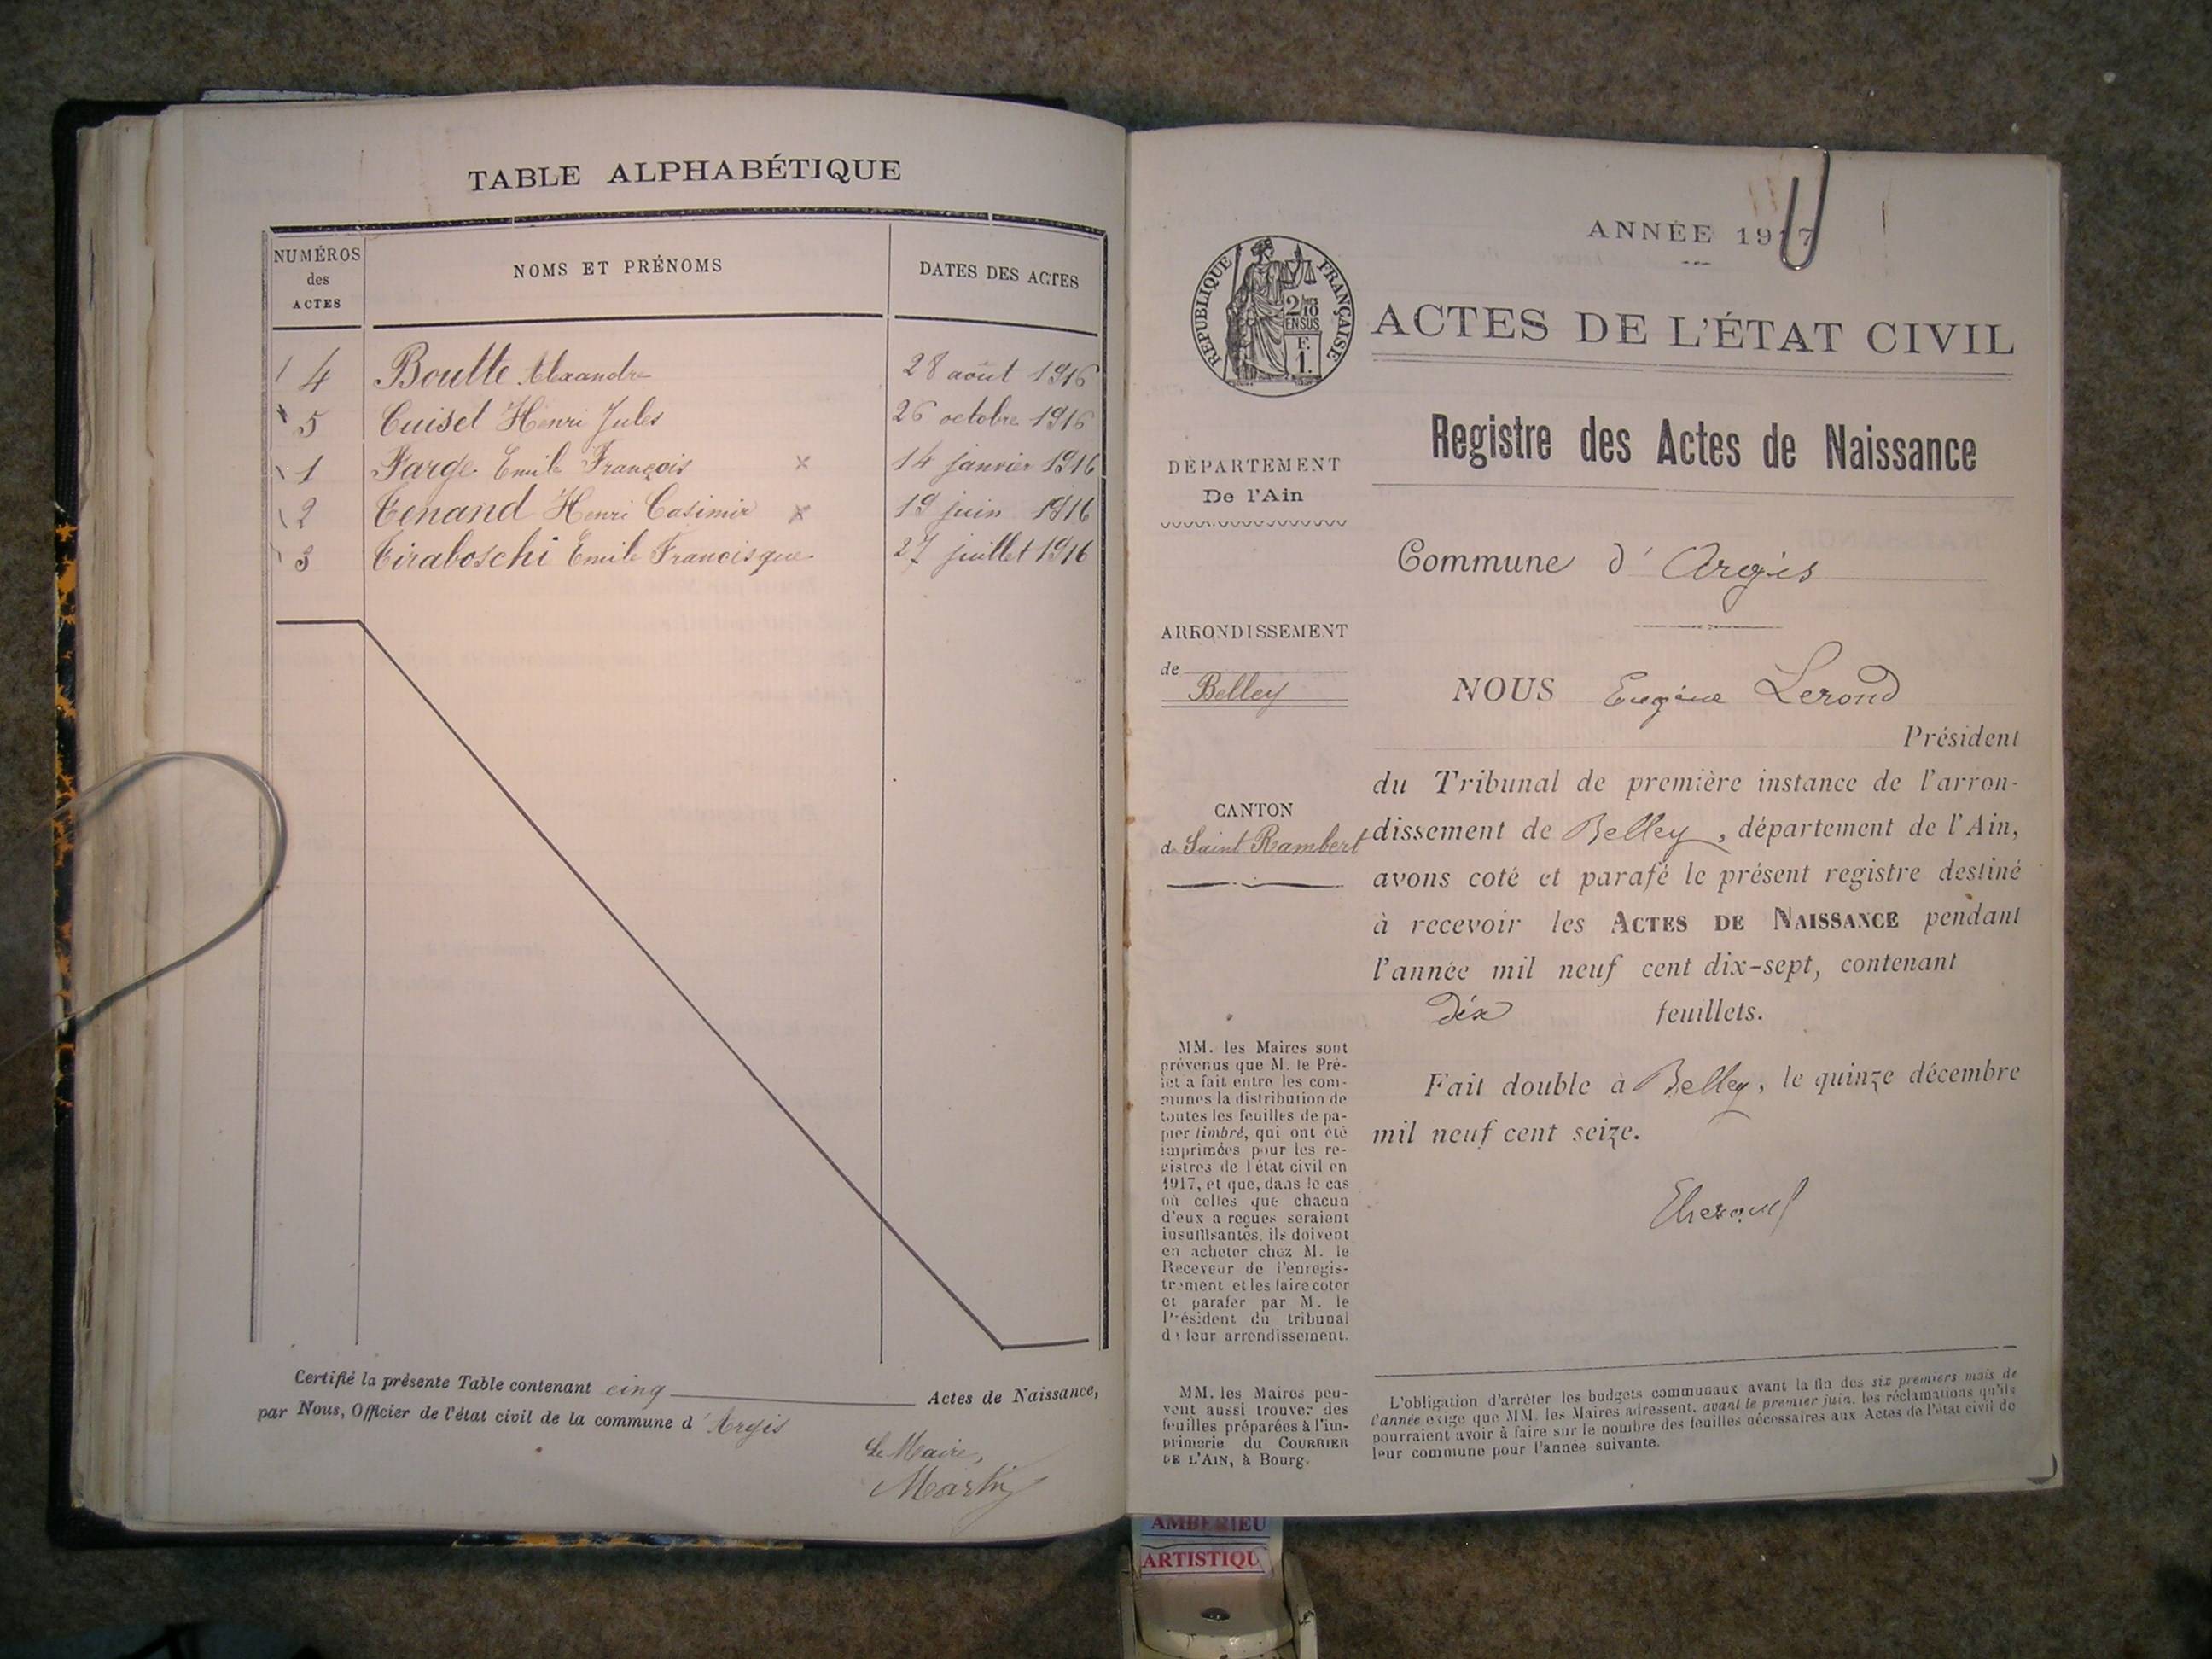 TABLE ALPHABÉTIQUE
NUMÉROS
des
ACTES
NOMS ET PRÉNOMS
DATES DES ACTES
4 Boutte Alexandre 28 août 1916
5 Cuiset Henri Jules 26 octobre 1916
1 Farge Emile François × 14 janvier 1916
2 Tenand Henri Casimir × 19 juin 1916
3 Tiraboschi Emile Francisque 27 juillet 1916
Certifié la présente Table contenant cinq Actes de Naissance,
par Nous, Officier de l'état civil de la commune d'Argis
Le Maire,
Martin
ANNÉE 1917
RÉPUBLIQUE FRANÇAISE
2/10
EN SUS
F.
1.
ACTES DE L'ÉTAT CIVIL
Registre des Actes de Naissance
DÉPARTEMENT
De l'Ain
Commune d'Argis
ARRONDISSEMENT
de
Belley
NOUS Eugène Lerond
Président
du Tribunal de première instance de l'arron-
CANTON
de Saint Rambert
dissement de Belley, département de l'Ain,
avons coté et parafé le présent registre destiné
à recevoir les ACTES DE NAISSANCE pendant
l'année mil neuf cent dix-sept, contenant
dix feuillets.
Fait double à Belley, le quinze décembre
mil neuf cent seize.
MM. les Maires sont
prévenus que M. le Pré-
fet a fait entre les com-
munes la distribution de
toutes les feuilles de pa-
pier timbré, qui ont été
imprimées pour les re-
gistres de l'état civil en
1917, et que, dans le cas
où celles que chacun
d'eux a reçues seraient
insuffisantes, ils doivent
en acheter chez M. le
Receveur de l'enregis-
trement et les faire coter
et parafer par M. le
Président du tribunal
de leur arrondissement.
MM. les Maires peu-
vent aussi trouver des
feuilles préparées à l'im-
primerie du COURRIER
DE L'AIN, à Bourg.
L'obligation d'arrêter les budgets communaux avant la fin des six premiers mois de
l'année exige que MM. les Maires adressent, avant le premier juin, les réclamations qu'ils
pourraient avoir à faire sur le nombre des feuilles nécessaires aux Actes de l'état civil de
leur commune pour l'année suivante.
AMBERIEU
ARTISTIQU